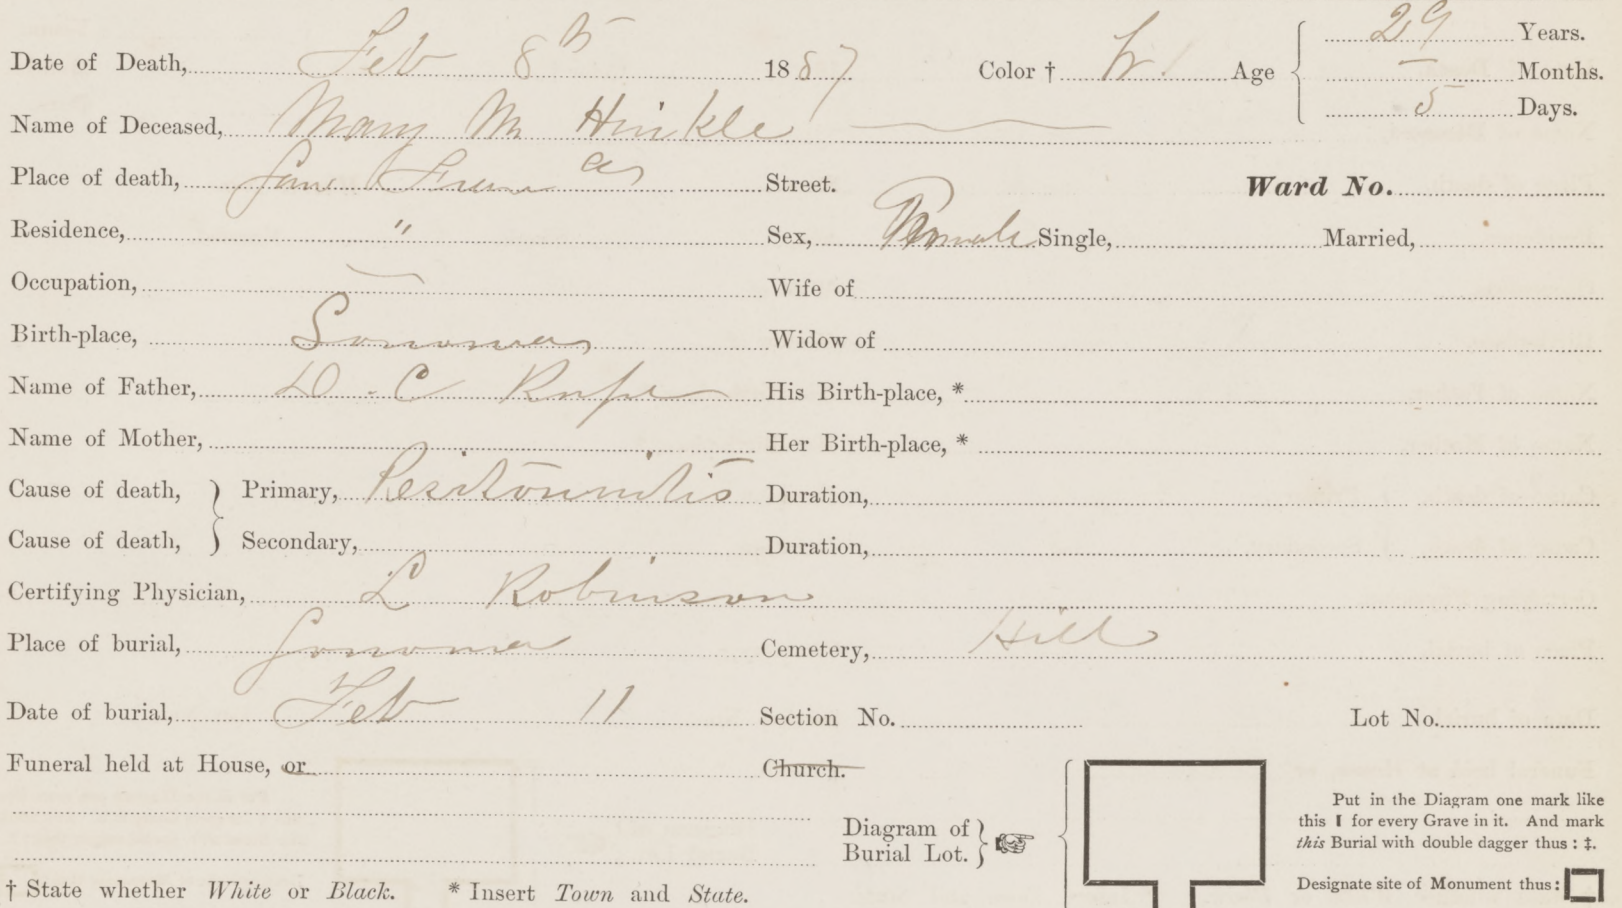 Date of Death, Feb 8th 1887 Color † W. Age 29 Years.
– Months.
5 Days.
Name of Deceased, Mary M Hinkle
Place of death, San Fran Street. Ward No.
Residence, " Sex, Female Single, Married,
Occupation, — Wife of
Birth-place, Sonoma Widow of
Name of Father, D. C Rupe His Birth-place, *
Name of Mother, Her Birth-place, *
Cause of death, } Primary, Peritonitis Duration,
Cause of death, } Secondary, Duration,
Certifying Physician, L Robinson
Place of burial, Sonoma Cemetery, Hill
Date of burial, Feb 11 Section No. Lot No.
Funeral held at House, or Church.
Diagram of }
Burial Lot. }
Put in the Diagram one mark like
this I for every Grave in it. And mark
this Burial with double dagger thus : ‡.
Designate site of Monument thus:
† State whether White or Black. * Insert Town and State.